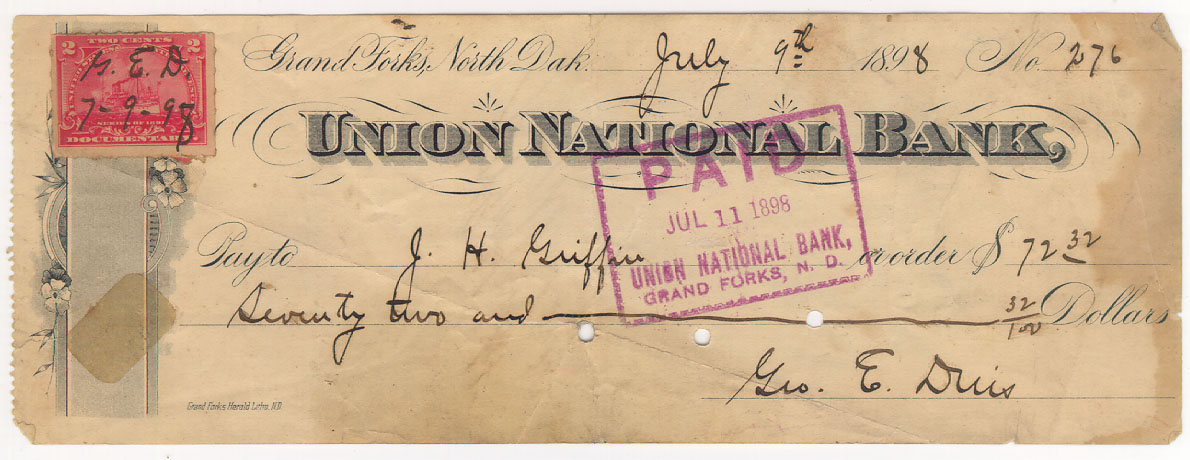 Grand Forks, North Dak. July 9th 1898 No. 276
TWO CENTS
2 2
G. E. D.
7-9-98
SERIES OF 1898
DOCUMENTARY
UNION NATIONAL BANK,
PAID
JUL 11 1898
UNION NATIONAL BANK,
GRAND FORKS, N. D.
Pay to J. H. Griffin or order $ 72 32
Seventy two and 32/100 Dollars
Geo. E. Duis
Grand Forks Herald Litho. N.D.